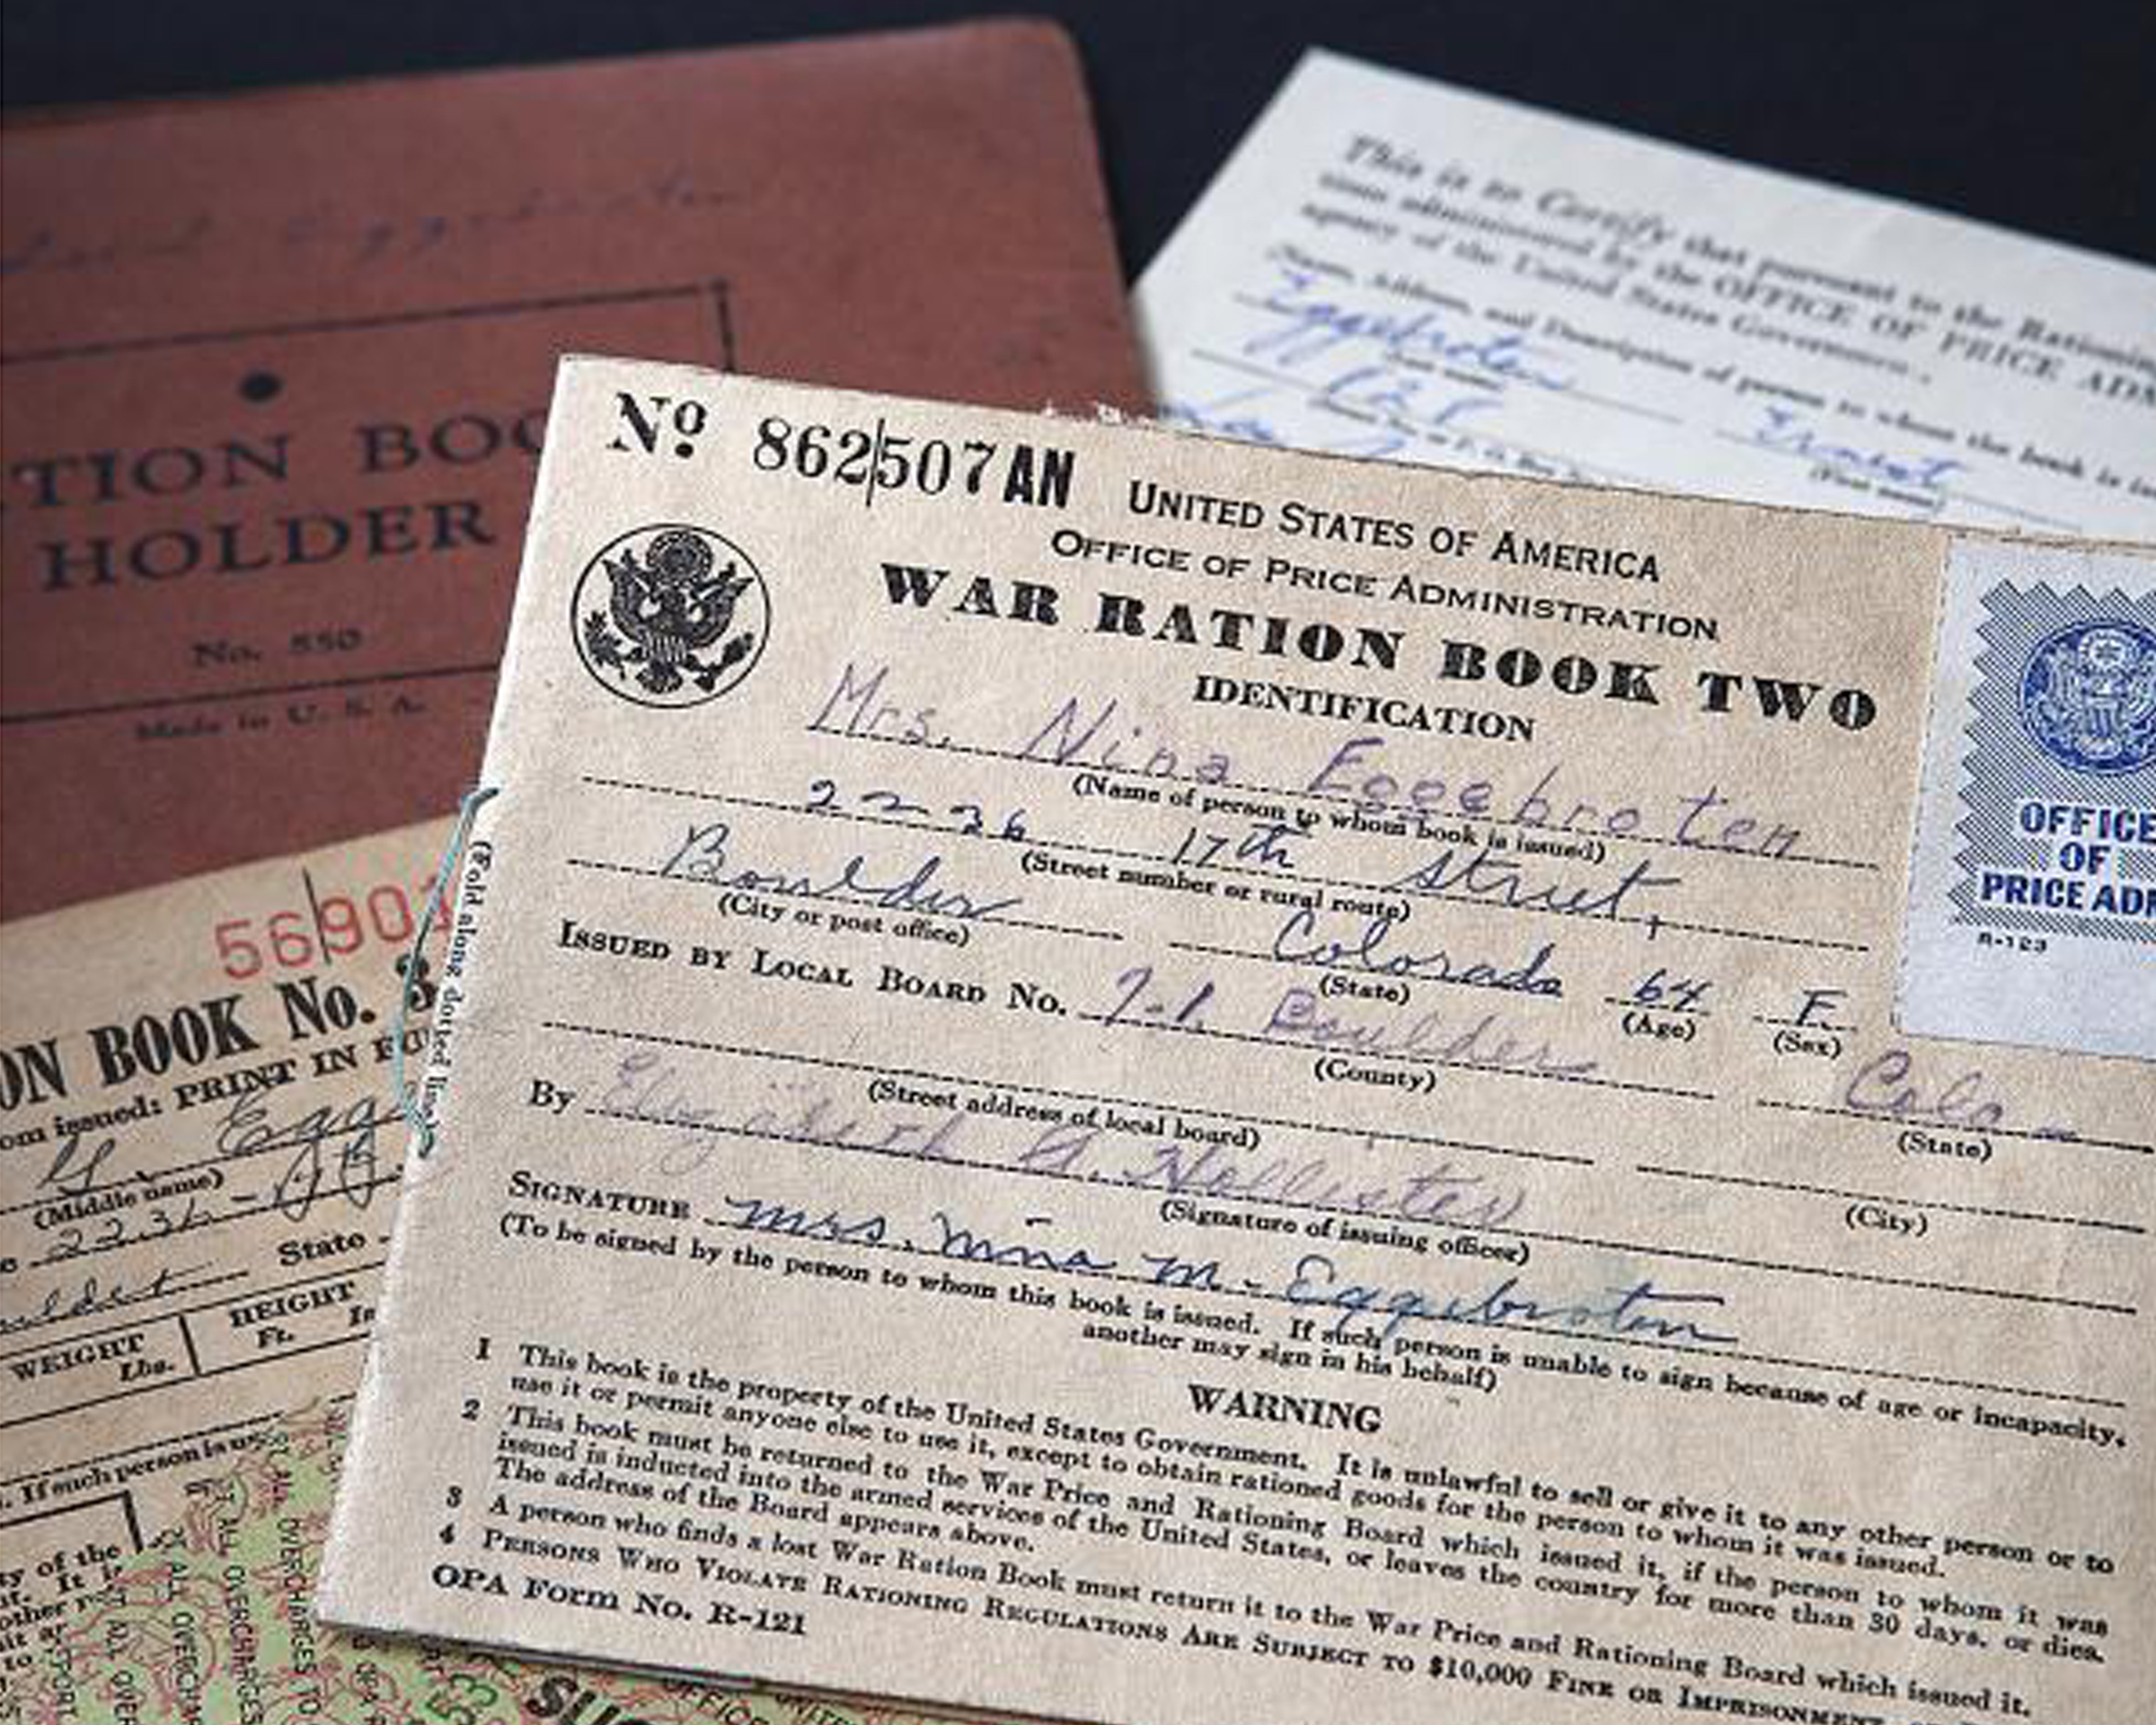 Eggebroten
TION BOO
HOLDER
No. 550
Made in U. S. A.
This is to Certify that pursuant to the Rationing
administered by the OFFICE OF PRICE ADM
agency of the United States Government.
(Name, Address, and Description of person to whom the book is is
Eggebroten
Ernest
(First name)
No 862507 AN
UNITED STATES OF AMERICA
OFFICE OF PRICE ADMINISTRATION
WAR RATION BOOK TWO
IDENTIFICATION
Mrs. Nina Eggebroten
(Name of person to whom book is issued)
2236 17th Street,
(Street number or rural route)
Boulder Colorado 64 F
(City or post office) (State) (Age) (Sex)
ISSUED BY LOCAL BOARD NO. 7-1 Boulder Colo
(County) (State)
(Street address of local board) (City)
By Elizabeth G. Hollister
(Signature of issuing officer)
SIGNATURE Mrs. Nina M. Eggebroten
(To be signed by the person to whom this book is issued. If such person is unable to sign because of age or incapacity,
another may sign in his behalf)
WARNING
1 This book is the property of the United States Government. It is unlawful to sell or give it to any other person or to
use it or permit anyone else to use it, except to obtain rationed goods for the person to whom it was issued.
2 This book must be returned to the War Price and Rationing Board which issued it, if the person to whom it was
issued is inducted into the armed services of the United States, or leaves the country for more than 30 days, or dies.
The address of the Board appears above.
3 A person who finds a lost War Ration Book must return it to the War Price and Rationing Board which issued it.
4 PERSONS WHO VIOLATE RATIONING REGULATIONS ARE SUBJECT TO $10,000 FINE OR IMPRISONMENT
OPA Form No. R-121
(Fold along dotted line)
OFFICE
OF
PRICE ADM
R-123
56901
ON BOOK No. 3
om issued: PRINT IN FU
M Egge
(Middle name)
2236
State
WEIGHT HEIGHT
Lbs. Ft. In
. If such person is un
ty of the
It is
other
OVERCHARGES TO
53
SUG
OFFICE